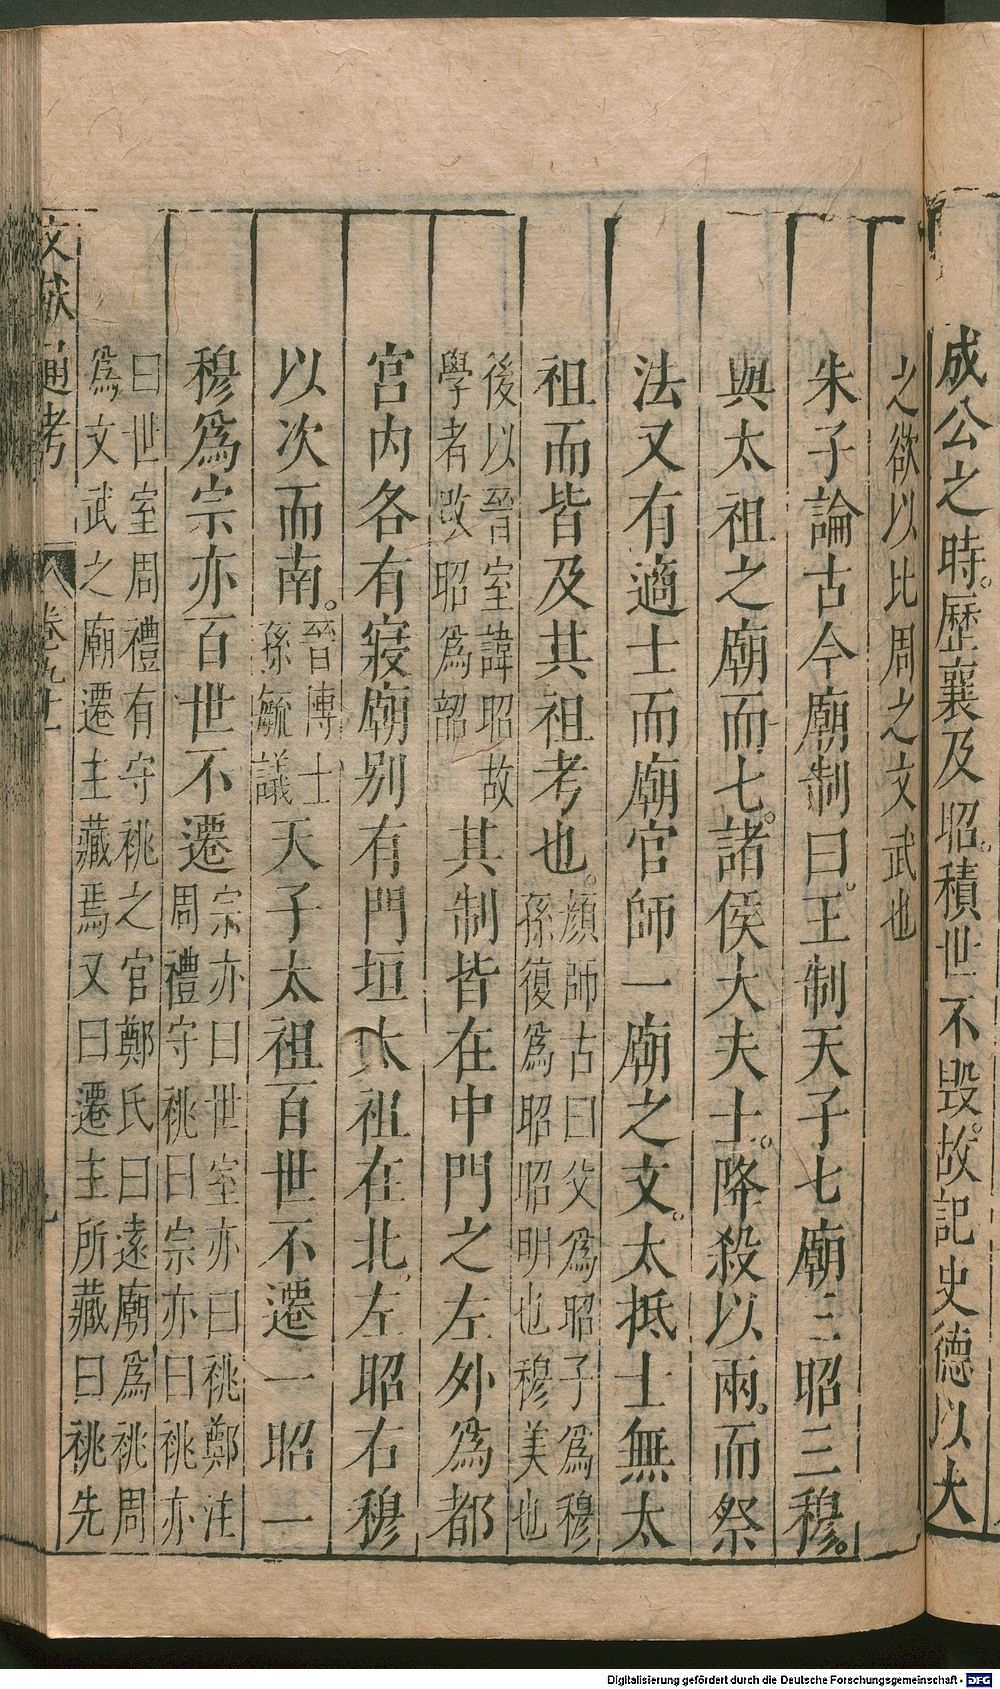 成公之時。歷襄及昭。積世不毀。故記史德以大
之欲以比周之文武也
朱子論古今廟制曰。王制天子七廟三昭三穆。
與太祖之廟而七。諸侯大夫士。降殺以兩。而祭
法又有適士二廟官師一廟之文。太抵士無太
祖而皆及其祖考也。顏師古曰父爲昭子爲穆
孫復爲昭昭明也穆美也
後以晉室諱昭故
學者改昭爲韶其制皆在中門之左外爲都
宮內各有寢廟別有門垣太祖在北。左昭右穆
以次而南。晉博士
孫毓議天子太祖百世不遷一昭一
穆爲宗亦百世不遷宗亦曰世室亦曰祧鄭注
周禮守祧曰宗亦曰祧亦
曰世室周禮有守祧之官鄭氏曰遠廟爲祧周
爲文武之廟遷主藏焉又曰遷主所藏曰祧先
文獻通考
卷九十一
Digitalisierung gefördert durch die Deutsche Forschungsgemeinschaft - DFG